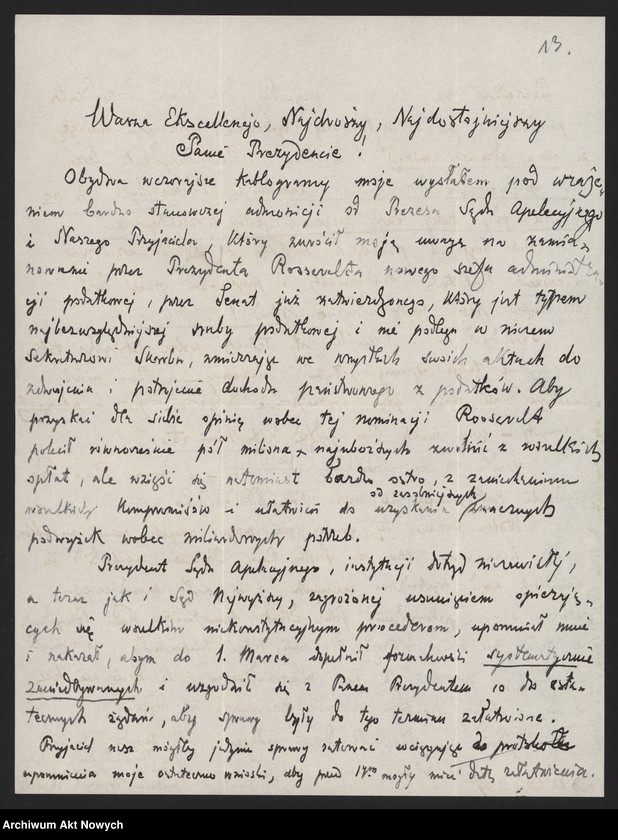 13.
Wasza Ekscellencjo, Najdroższy, Najdostojniejszy
Panie Prezydencie!
Obydwa wczorajsze kablogramy moje wysłałem pod wraże-
niem bardzo stanowczej admonicji od Prezesa Sądu Apelacyjnego
i Naszego Przyjaciela, który zwrócił moją uwagę na zamia-
nowanie przez Prezydenta Roosevelta nowego szefa administra-
cji podatkowej, przez Senat już zatwierdzonego, który jest typem
najbezwzględniejszej śruby podatkowej i nie podlega w niczem
Sekretarzowi Skarbu, zmierzając we wszystkich swoich aktach do
zdwojenia i potrojenia dochodu państwowego z podatków. Aby
pozyskać dla siebie opinię wobec tej nominacji Roosevelt
polecił równocześnie pół miliona najuboższych zwolnić z wszelkich
opłat, ale wziąść się natomiast bardzo ostro, z zaniechaniem
wszelkich kompromisów i ułatwień do uzyskania od zasobniejszych znacznych
podwyżek wobec miliardowych potrzeb.
Prezydent Sądu Apelacyjnego, instytucji dotąd niezawisłej,
a teraz jak i Sąd Najwyższy, zagrożonej usunięciem opierają-
cych się wszelkim niekonstytucyjnym procederom, upomniał mnie
i nakazał, abym do 1. Marca dopełnił formalności systematycznie
zaniedbywanych i uzgodnił się z Panem Prezydentem co do osta-
tecznych żądań, aby sprawy były do tego terminu załatwione.
Przyjaciel nasz mógłby jedynie sprawy ratować wciągając do protokołu
upomnienia moje ostateczne wnioski, aby przed 17ym mogły mieć datę załatwienia.
Archiwum Akt Nowych